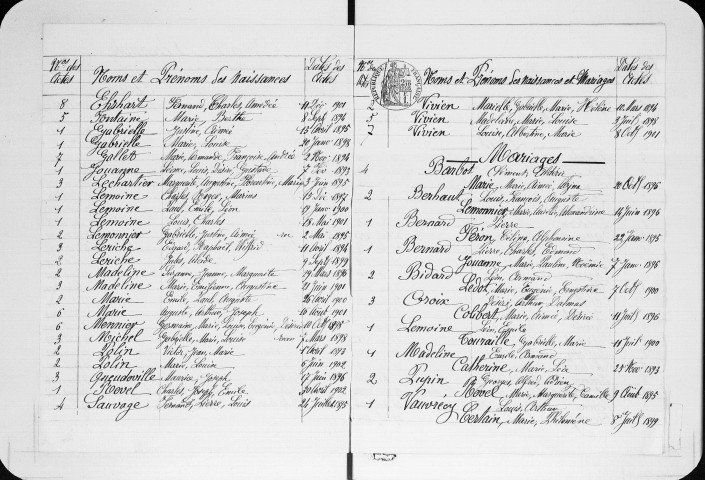 Nos des Actes Noms et Prénoms des naissances Dates des Actes
8 Ehrhart Fernand, Charles, Amédée 11 Déc 1901
5 Fontaine Marie Berthe 8 Sept 1896
1 Gabrielle Justin, Aimé 15 Avril 1895
1 Gabrielle Marie, Louise 20 Janv 1898
7 Gallet 2 Nov 1896
1 Jouanne Gustave 7 Fév 1893
3 Lechartier Marguerite, Augustine, Marie 3 Juin 1895
1 Lemoine Charles, Marius 13 Déc 1897
1 Lemoine Paul, Emile, Léon 19 Janv 1900
1 Lemoine Louis, Charles 18 Mai 1901
2 Lemonnier Gabrielle, Justine, Aimée 2 Mai 1895
3 Leriche Raphaël, 11 Avril 1896
2 Leriche Jules, 9 Sept 1899
2 Madeline Jeanne, Marguerite 19 Mars 1896
3 Madeline Marie, Emilienne, Augustine 11 Juin 1901
2 Marie Emile, Paul, Auguste 26 Avril 1900
6 Marie Auguste, Arthur, Joseph 10 Août 1901
6 Monnier Germaine, Marie, Louise, Eugénie, 10 Oct 1898
3 Michel Gabrielle, Marie, Louise 7 Mars 1898
2 Polin Victor, Jean, Marie 1 Avril 1893
2 Polin Marie, Louise 6 Juin 1902
3 Maurice, Joseph 17 Juin 1896
1 Rovel Charles, Joseph, Emile 30 Avril 1902
4 Sauvage Fernand, Pierre, Louis 24 Juillet 1895
Nos des Actes Noms et Prénoms des naissances et Mariages Dates des Actes
2 Vivien Marielle, Gabrielle, Marie, Hélène 10 Mars 1896
Vivien Madeleine, Marie, Louise 2 Juil 1898
Vivien Louise, Albertine, Marie 8 Oct 1901
Mariages
4 Barbot
Marie Marie, Aimée, 20 Oct 1896
2 Berhault Louis, François, Auguste
Lemonnier Marie, Alexandrine 14 Juin 1896
1 Bernard Pierre
Féron Alphonsine 22 Janv 1895
1 Bernard Pierre, Charles, Edmond
Jouanne Marie, Pauline, Noémie 7 Janv 1896
2 Bidard Armand
Ledot Marie, Eugénie, Ernestine 7 Oct 1900
3 Croix Arthur,
Colibert Marie, Aimée, Désirée 11 Juil 1896
1 Lemoine Emile
Touraille Gabrielle, Marie 11 Juil 1900
4 Madeline Emile, Armand
Catherine Marie, 23 Nov 1893
2 Lupin Georges,
Rovel Marie, Marguerite, Camille 9 Août 1895
1 Vauvrecy Louis, Arthur
Certain, Marie, Philomène 8 Juil 1899